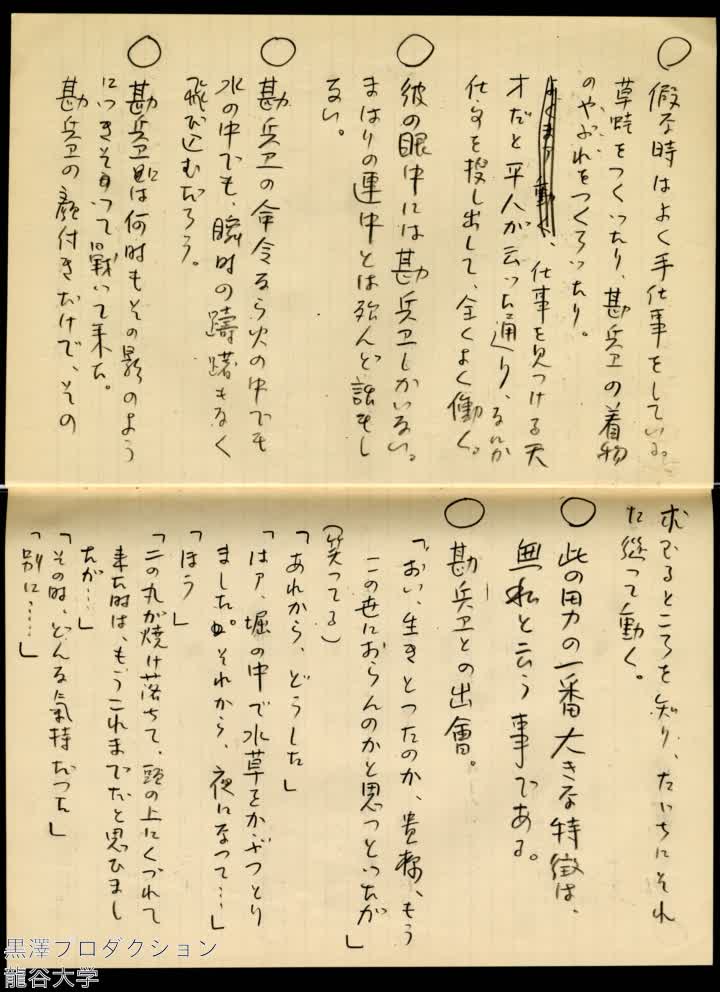 ○ 假な時はよく手仕事をしている。
草鞋をつくったり、勘兵卫の着物
のやぶれをつくろったり。
よくまァ働く、仕事を見つける天
才だと平八が云った通り、なにか
仕事を捜し出して、全くよく働く。
○ 彼の眼中には勘兵卫しかいない。
まはりの連中とは殆んど話もし
ない。
○ 勘兵卫の命令なら火の中でも
水の中でも、瞬時の躊躇もなく
飛び込むだろう。
○ 勘兵卫には何時もその影のよう
につきそって戦いて来た。
勘兵卫の顔付きだけで、その
求めるところを知り、たゞちにそれ
に従って働く。
○ 此の男の一番大きな特徴は、
無私と云う事である。
○ 勘兵卫との出會。
「おい、生きとったのか、貴様、もう
この世におらんのかと思っとったが」
(笑ってる)
「あれから、どうした」
「はァ、堀の中で水草をかぶっとり
ました。それから、夜になって…」
「ほう」
「二の丸が焼け落ちて、頭の上にくづれて
来た時は、もうこれまでだと思ひまし
たが…」
「その時、どんな氣持だった」
「別に……」
黒澤プロダクション
龍谷大学